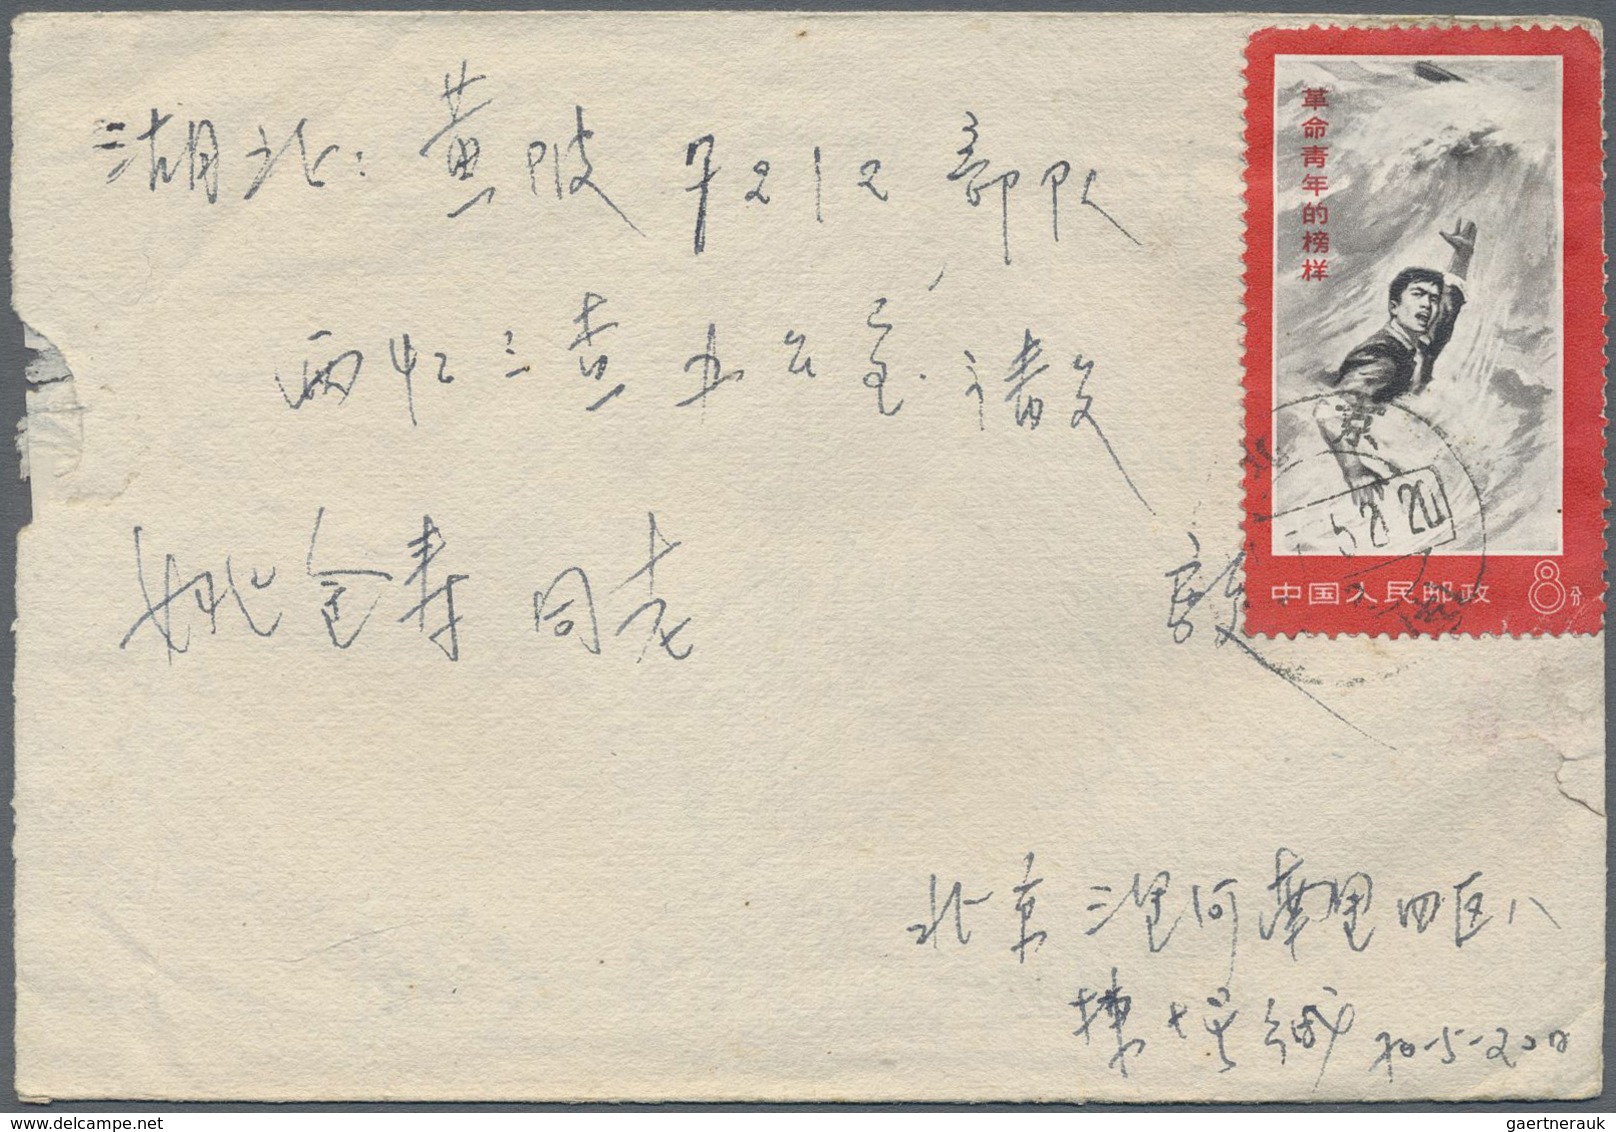 湖北：黄陂 7212 部队
两忆三查办公室 请交
姚金寿 同志 启
革命青年的榜样
京
5 21 20
中国人民邮政 8分
北京三里河南里四区八
缄 70-5-20日
gaertnerauk